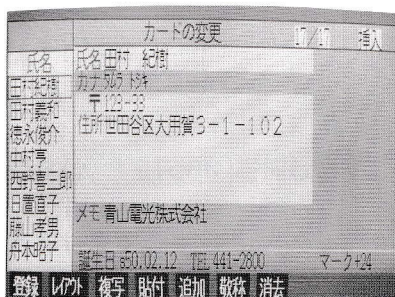 カードの変更 17/17 挿入
氏名
田村紀樹
田村義和
徳永俊介
中村亨
西野喜三郎
日置直子
藤山孝男
舟本昭子
氏名 田村 紀樹
カナ タムラ トシキ
〒123-33
住所 世田谷区大用賀3-1-102
メモ 青山電光株式会社
誕生日 s50.02.12 TEL 441-2800 マーク+24
登録 レイアウト 複写 貼付 追加 敬称 消去